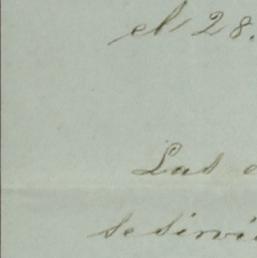 el 28.
Las
se sirvi